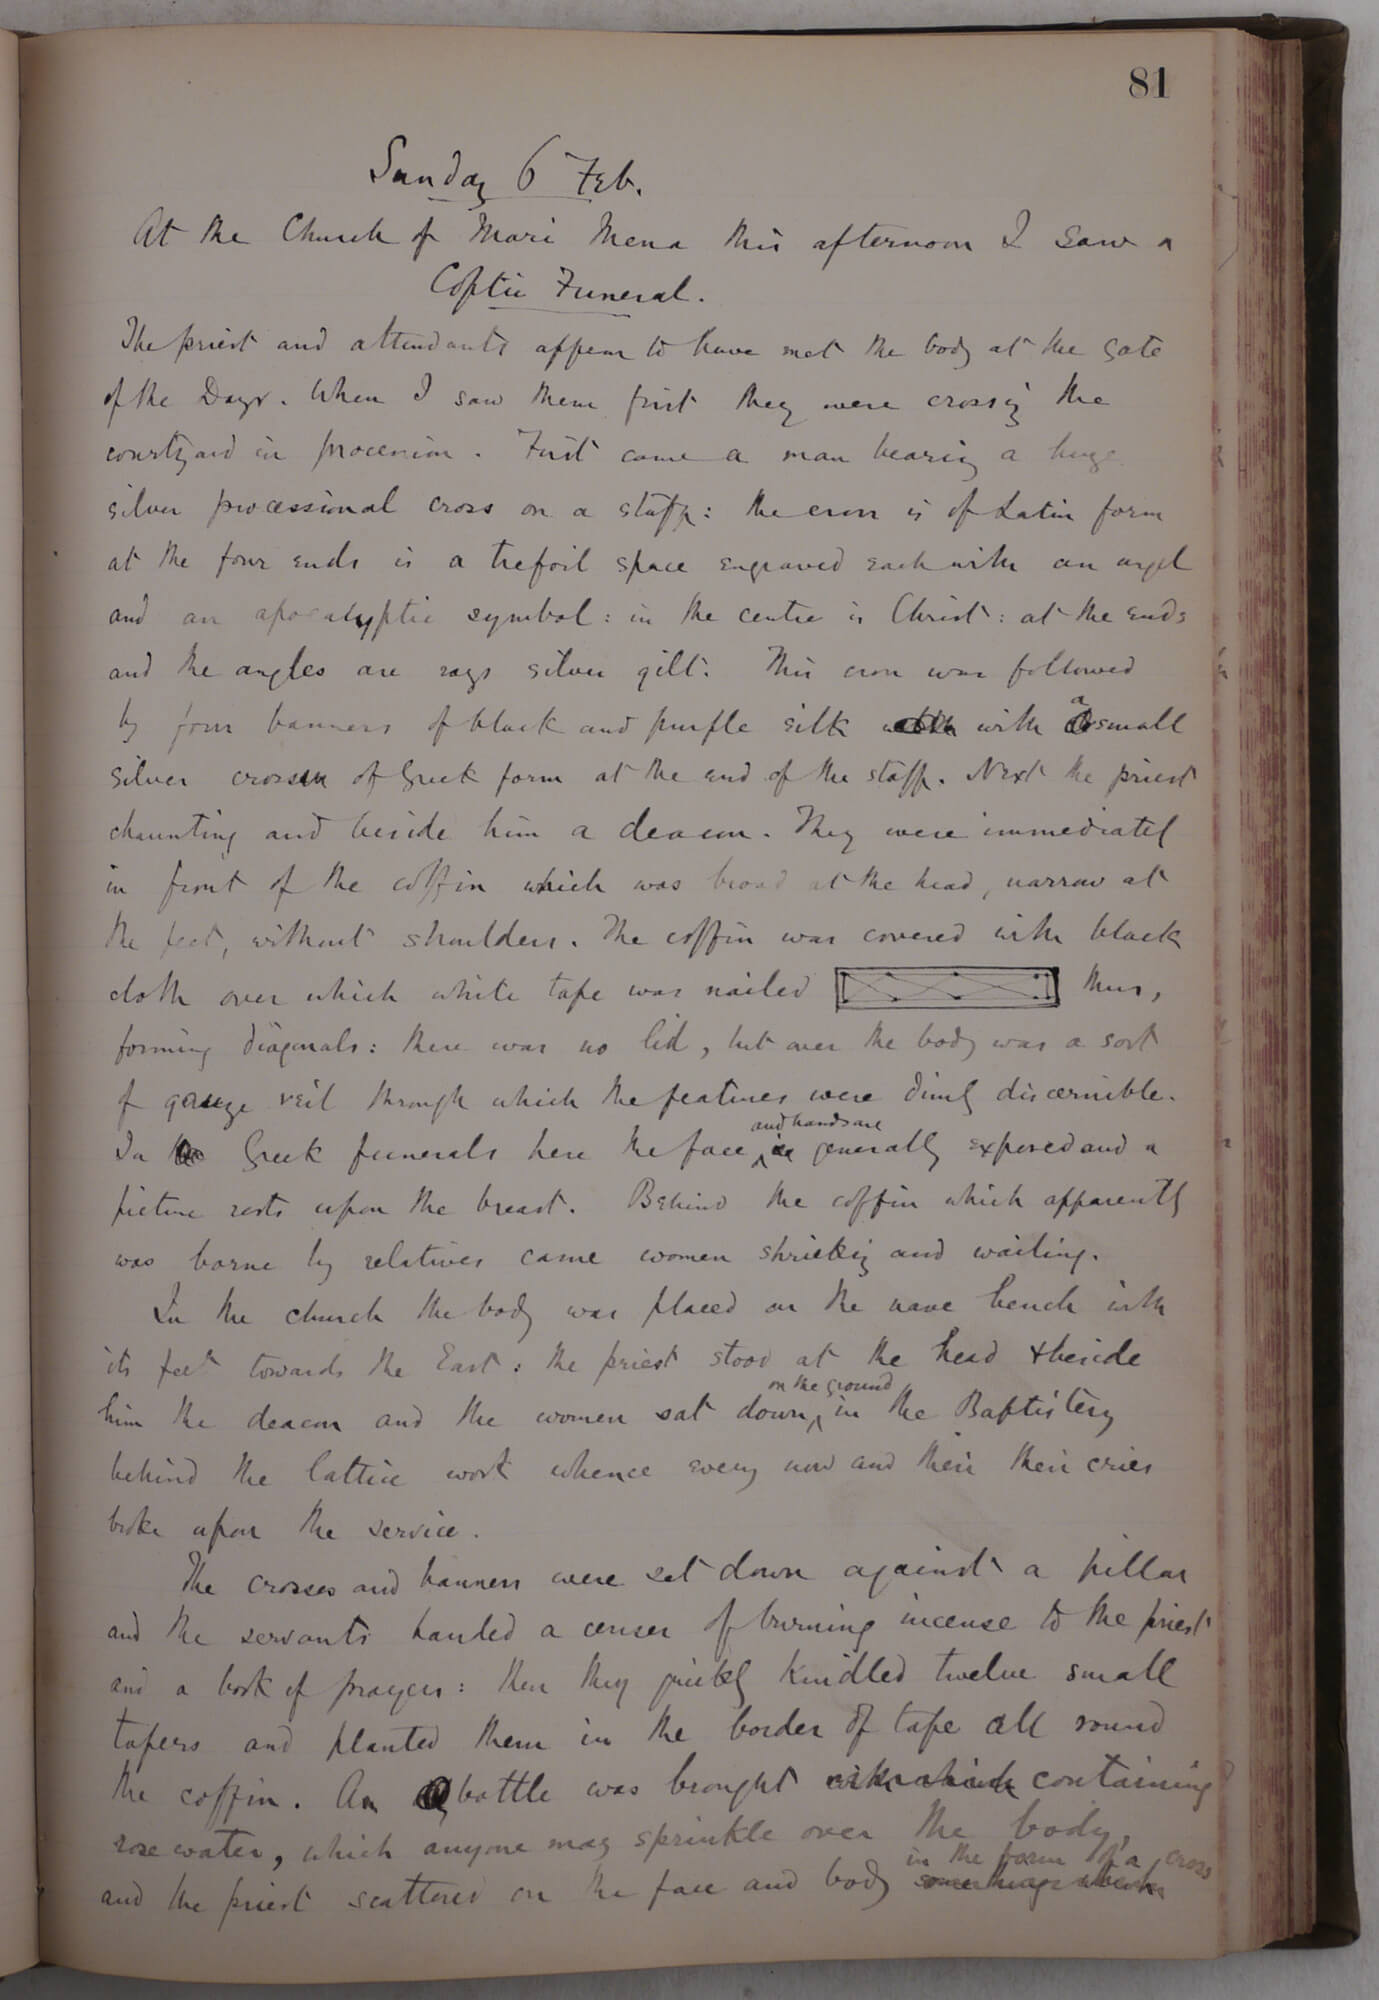 81
Sunday 6 Feb.
At the Church of Mari Mena this afternoon I saw a
Coptic Funeral.
The priest and attendants appear to have met the body at the gate
of the Dayr. When I saw them first they were crossing the
courtyard in procession. First came a man bearing a huge
silver processional cross on a staff: the cross is of Latin form
at the four ends is a trefoil space engraved each with an angel
and an apocalyptic symbol: in the centre is Christ: at the ends
and the angles are rays silver gilt. This cross was followed
by four banners of black and purple silk with a small
silver cross of Greek form at the end of the staff. Next the priest
chaunting and beside him a deacon. They were immediately
in front of the coffin which was broad at the head, narrow at
the feet, without shoulders. The coffin was covered with black
cloth over which white tape was nailed thus,
forming diagonals: there was no lid, but over the body was a sort
of gauze veil through which the features were dimly discernible.
In Greek funerals here the face and hands are generally exposed and a
picture rests upon the breast. Behind the coffin which apparently
was borne by relatives came women shrieking and wailing.
In the church the body was placed on the nave bench with
its feet towards the East: the priest stood at the head & beside
him the deacon and the women sat down on the ground in the Baptistery
behind the lattice work whence every now and then their cries
broke upon the service.
The crosses and banners were set down against a pillar
and the servants handed a censer of burning incense to the priest
and a book of prayers: then they quickly kindled twelve small
tapers and planted them in the border of tape all round
the coffin. A bottle was brought containing
rose water, which anyone may sprinkle over the body,
and the priest scattered on the face and body in the form of a cross